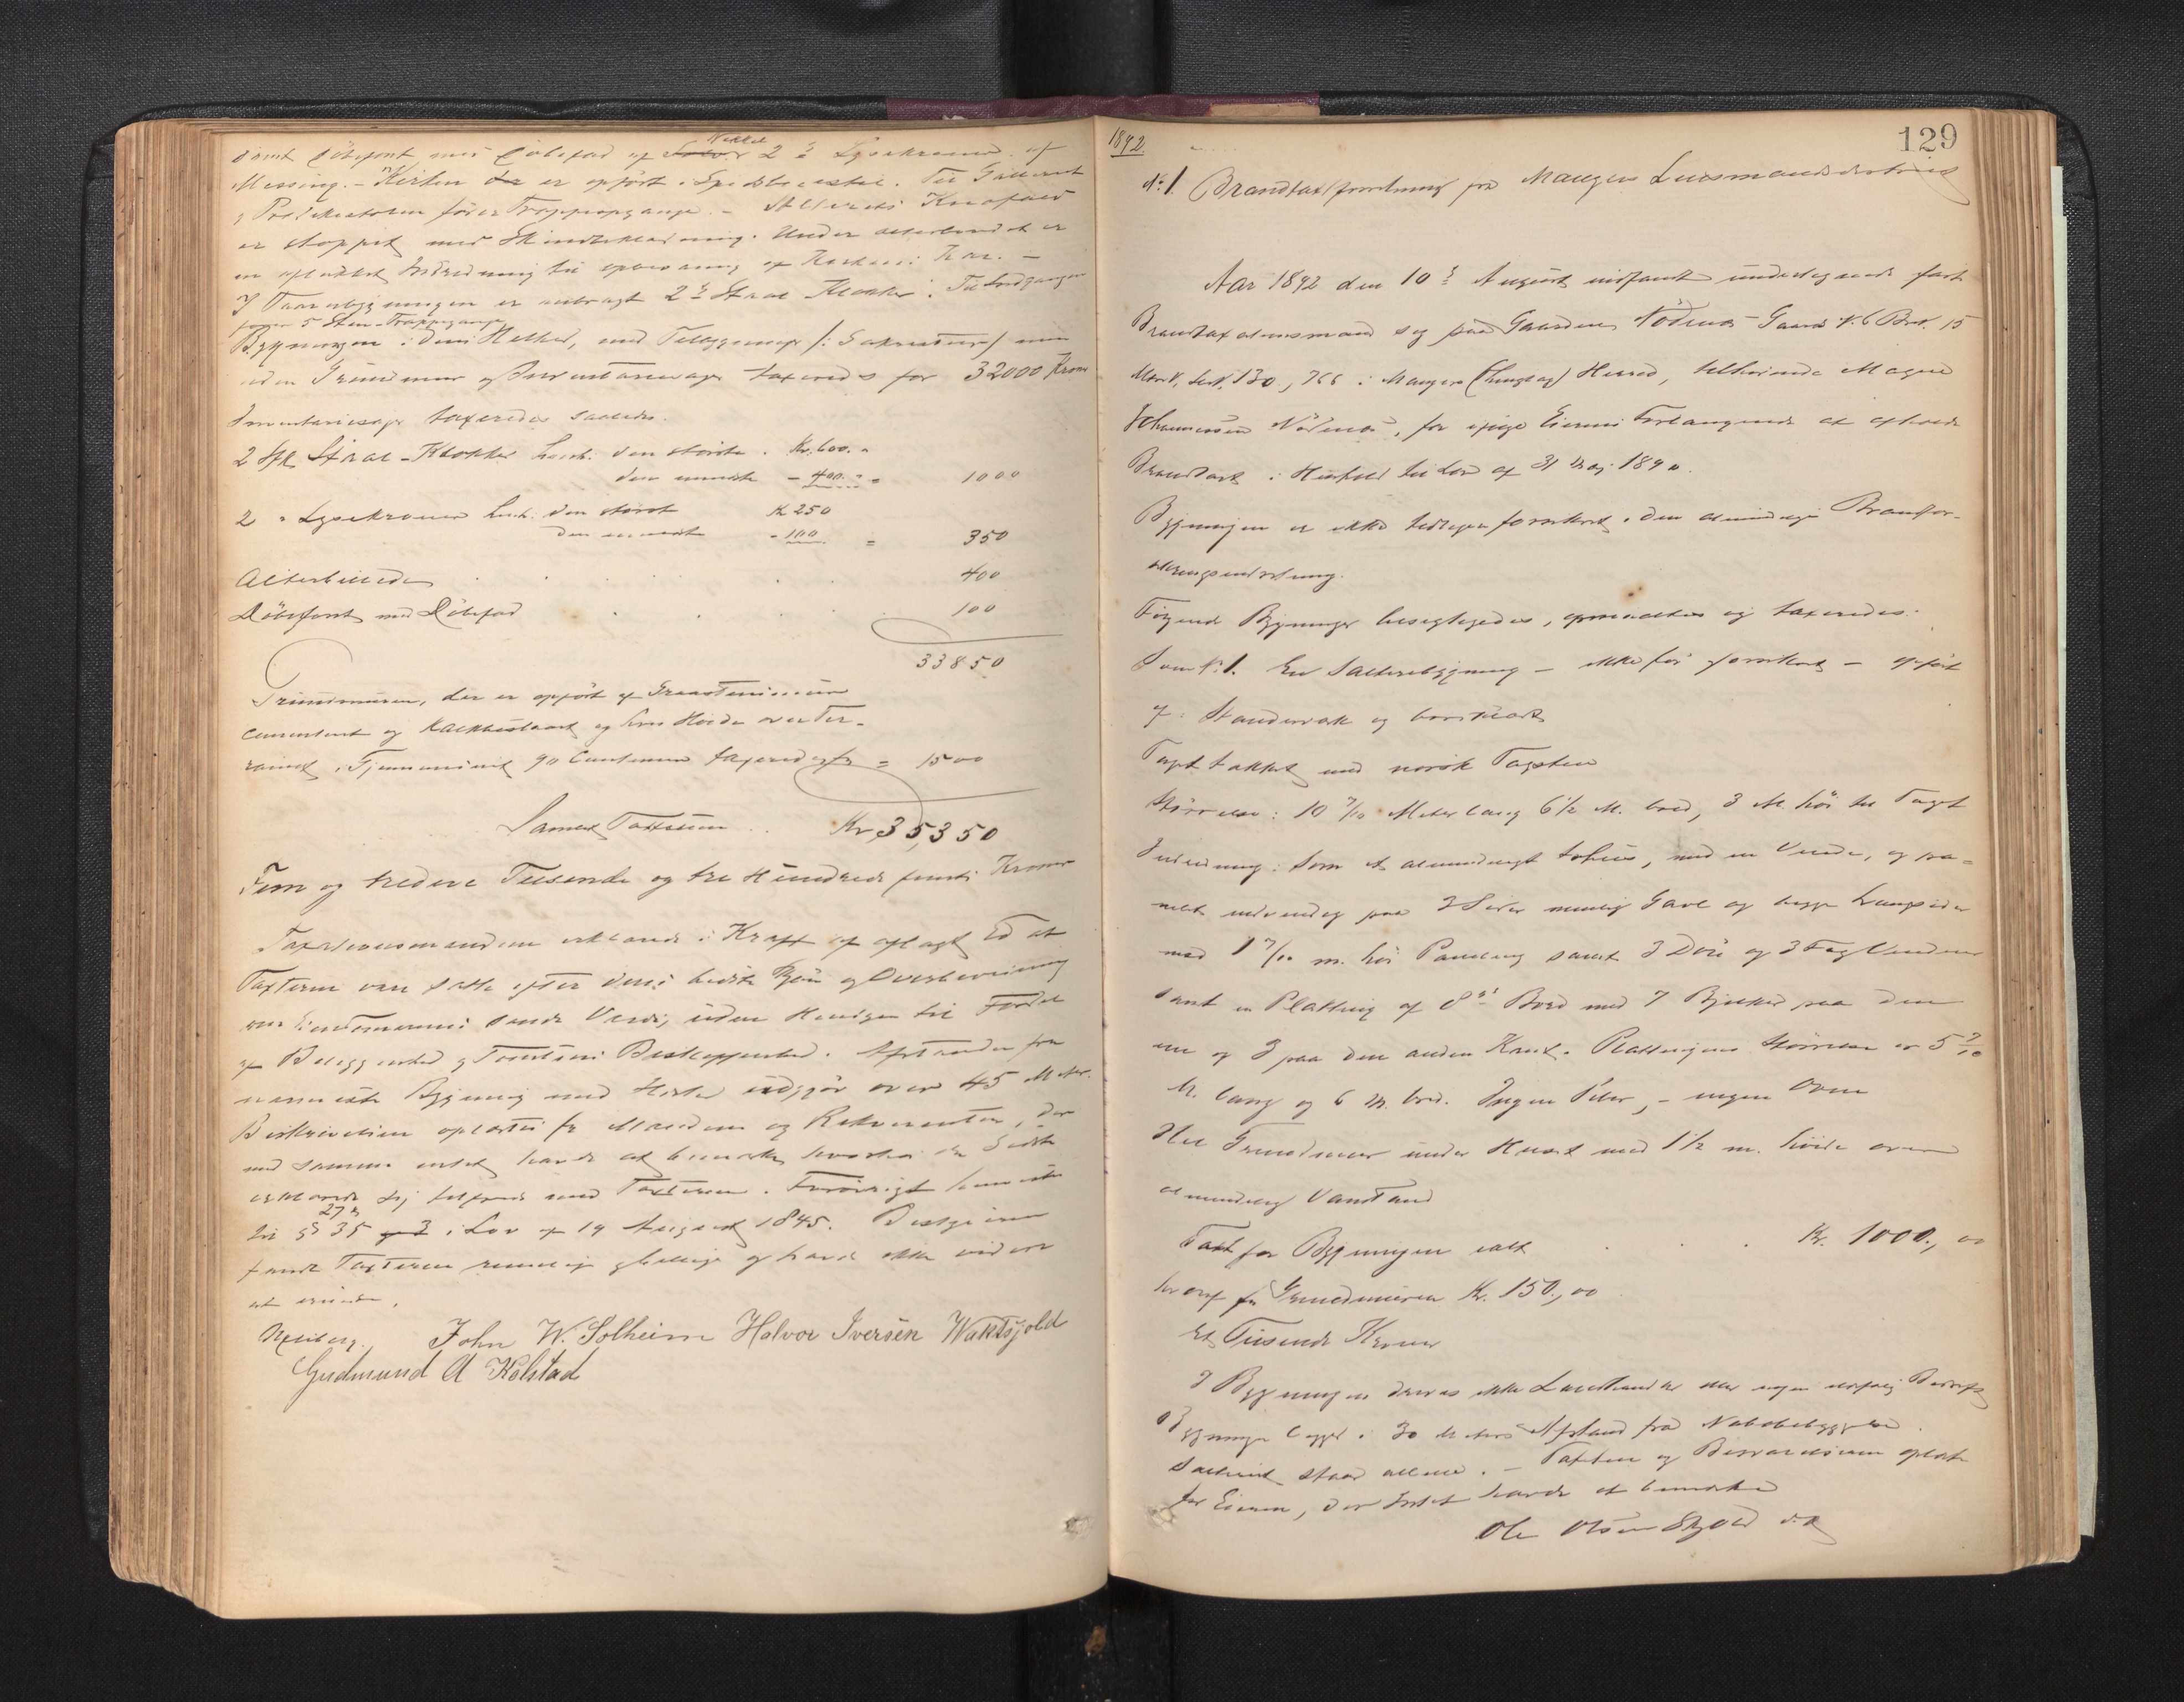 samt Döbefont med Döbefad af Nikkel 2de Lysekroner af
Messing. - Kirken er opfört i Spidsbuestil. Til Galleriet
og Prædikestolen förer Trappeopgange. - Alterets Knæfald
er stoppet med Skindbeklædning. Under alterbordet er
en Indredning til opbevaring af Kirkens Kar. -
I Taarnbygningen er anbragt 2de Staal Klokker. Til Indgangen
förer 5 Sten-Trappegange
Bygningen i dens Helhed, med Tilbygninger /: Sakristier / men
uden Grundmur og Inventariesager taxeredes for 32000 Kroner
Inventariesager taxeredes saaledes.
2 Stk. Staal-Klokker hvoraf den största . Kr. 600. "
den mindste - 400. " = 1000
2 " Lysekroner hvoraf den störst Kr 250
den mindste - 100 = 350
Alterbilledet 400
Döbefont med Döbefad 100
33850
Grundmuren, der er opfört af Graastensmur
cementeret og Kalkpudset og hvis Höide over Ter-
rainet i Gjennemsnit 90 Centimeter taxeredes for = 1500
Samlet Taxtsum .. Kr. 35,350
Fem og tredive Tusende og tre Hundrede femti Kroner
Taxationsmændene erklærede i Kraft af aflagt Ed at
Taxterne vare satte efter deres bedste Skjön og Overbevisning
om Eiendommens sande Værdi, uden Hensyn til Fordel
af Beliggenhed og Tomtens Beskaffenhed. Afstanden fra
nærmeste Bygning med Ildsted udgjör over 45 Meter.
Beskrivelsen oplæstes for Mændene og Rekvirenten, der
med samme intet havde at bemærke hvorhos den Sidste
erklærede sig tilfreds med Taxterne. Forövrigt henvistes
27 &
til § 35 i Lov af 19 August 1845. Bestyreren
fandt Taxterne rimelige og billige og havde ikke videre
at erindre.
John W. Solheim Halvor Iversen Waktsjold
Gudmund A Kolstad
1892.
129
No. 1. Brandtaxtforretning fra Mangers Lensmandsdistrict
Aar 1892 den 10de August indfandt undertegnede fast
Brandtaxationsmand sig paa Gaarden Nödenes Gaards N. 6 Brd. 15
Matr. N. Lösn. 130, 766 i Mangers (Thinglag) Herred, tilhörende Magne
Johannessen Nödenes, for ifølge Eierens Forlangende at afholde
Brandtaxt i Henhold til Lov af 31 Maj 1890.
Bygningen er ikke tidligere forsikret i den almindelige Brandfor-
sikringsindretning.
Følgende Bygninger besigtigedes, opmaaltes og taxeredes.
Som N. 1. En Salteribygning - ikke för forsikret - opfört
af: Standerværk og bordklædt
Taget tækket med norsk Tagsten
Störrelse: 10 7/10 Meter lang 6 1/2 M. bred, 3 M. höi til Taget
Indredning: Som et almindeligt Söhus, med en Vinde, og pa-
nelt indvendig paa 3 Sider nemlig Gavl og begge Langsider
med 1 7/10 m. höi Paneling samt 3 Döre og 3 Fag Vinduer
samt en Platting af Bord med 7 Bjelker paa den
ene og 3 paa den anden Kant. Plattingens Störrelse er 5 7/10
M. lang og 6 M. bred. Ingen Piber, - ingen Ovne
Hel Grundmur under Huset med 1 1/2 m. höide over
almindelig Vandstand
Taxt for Bygningen ialt . . . Kr. 1000,, 00
hvoraf for Grundmuren Kr. 150,, 00
Et Tusende Kroner
I Bygningen drives ikke Landhandler eller nogen ildsfarlig Bedrift
Bygningen ligger i 30 Meters Afstand fra Nabobebyggelse.
Salteriet staar allene. - Taxten og Beskrivelsen oplæst
for Eieren, der Intet havde at bemærke
Ole Olsen Skjold